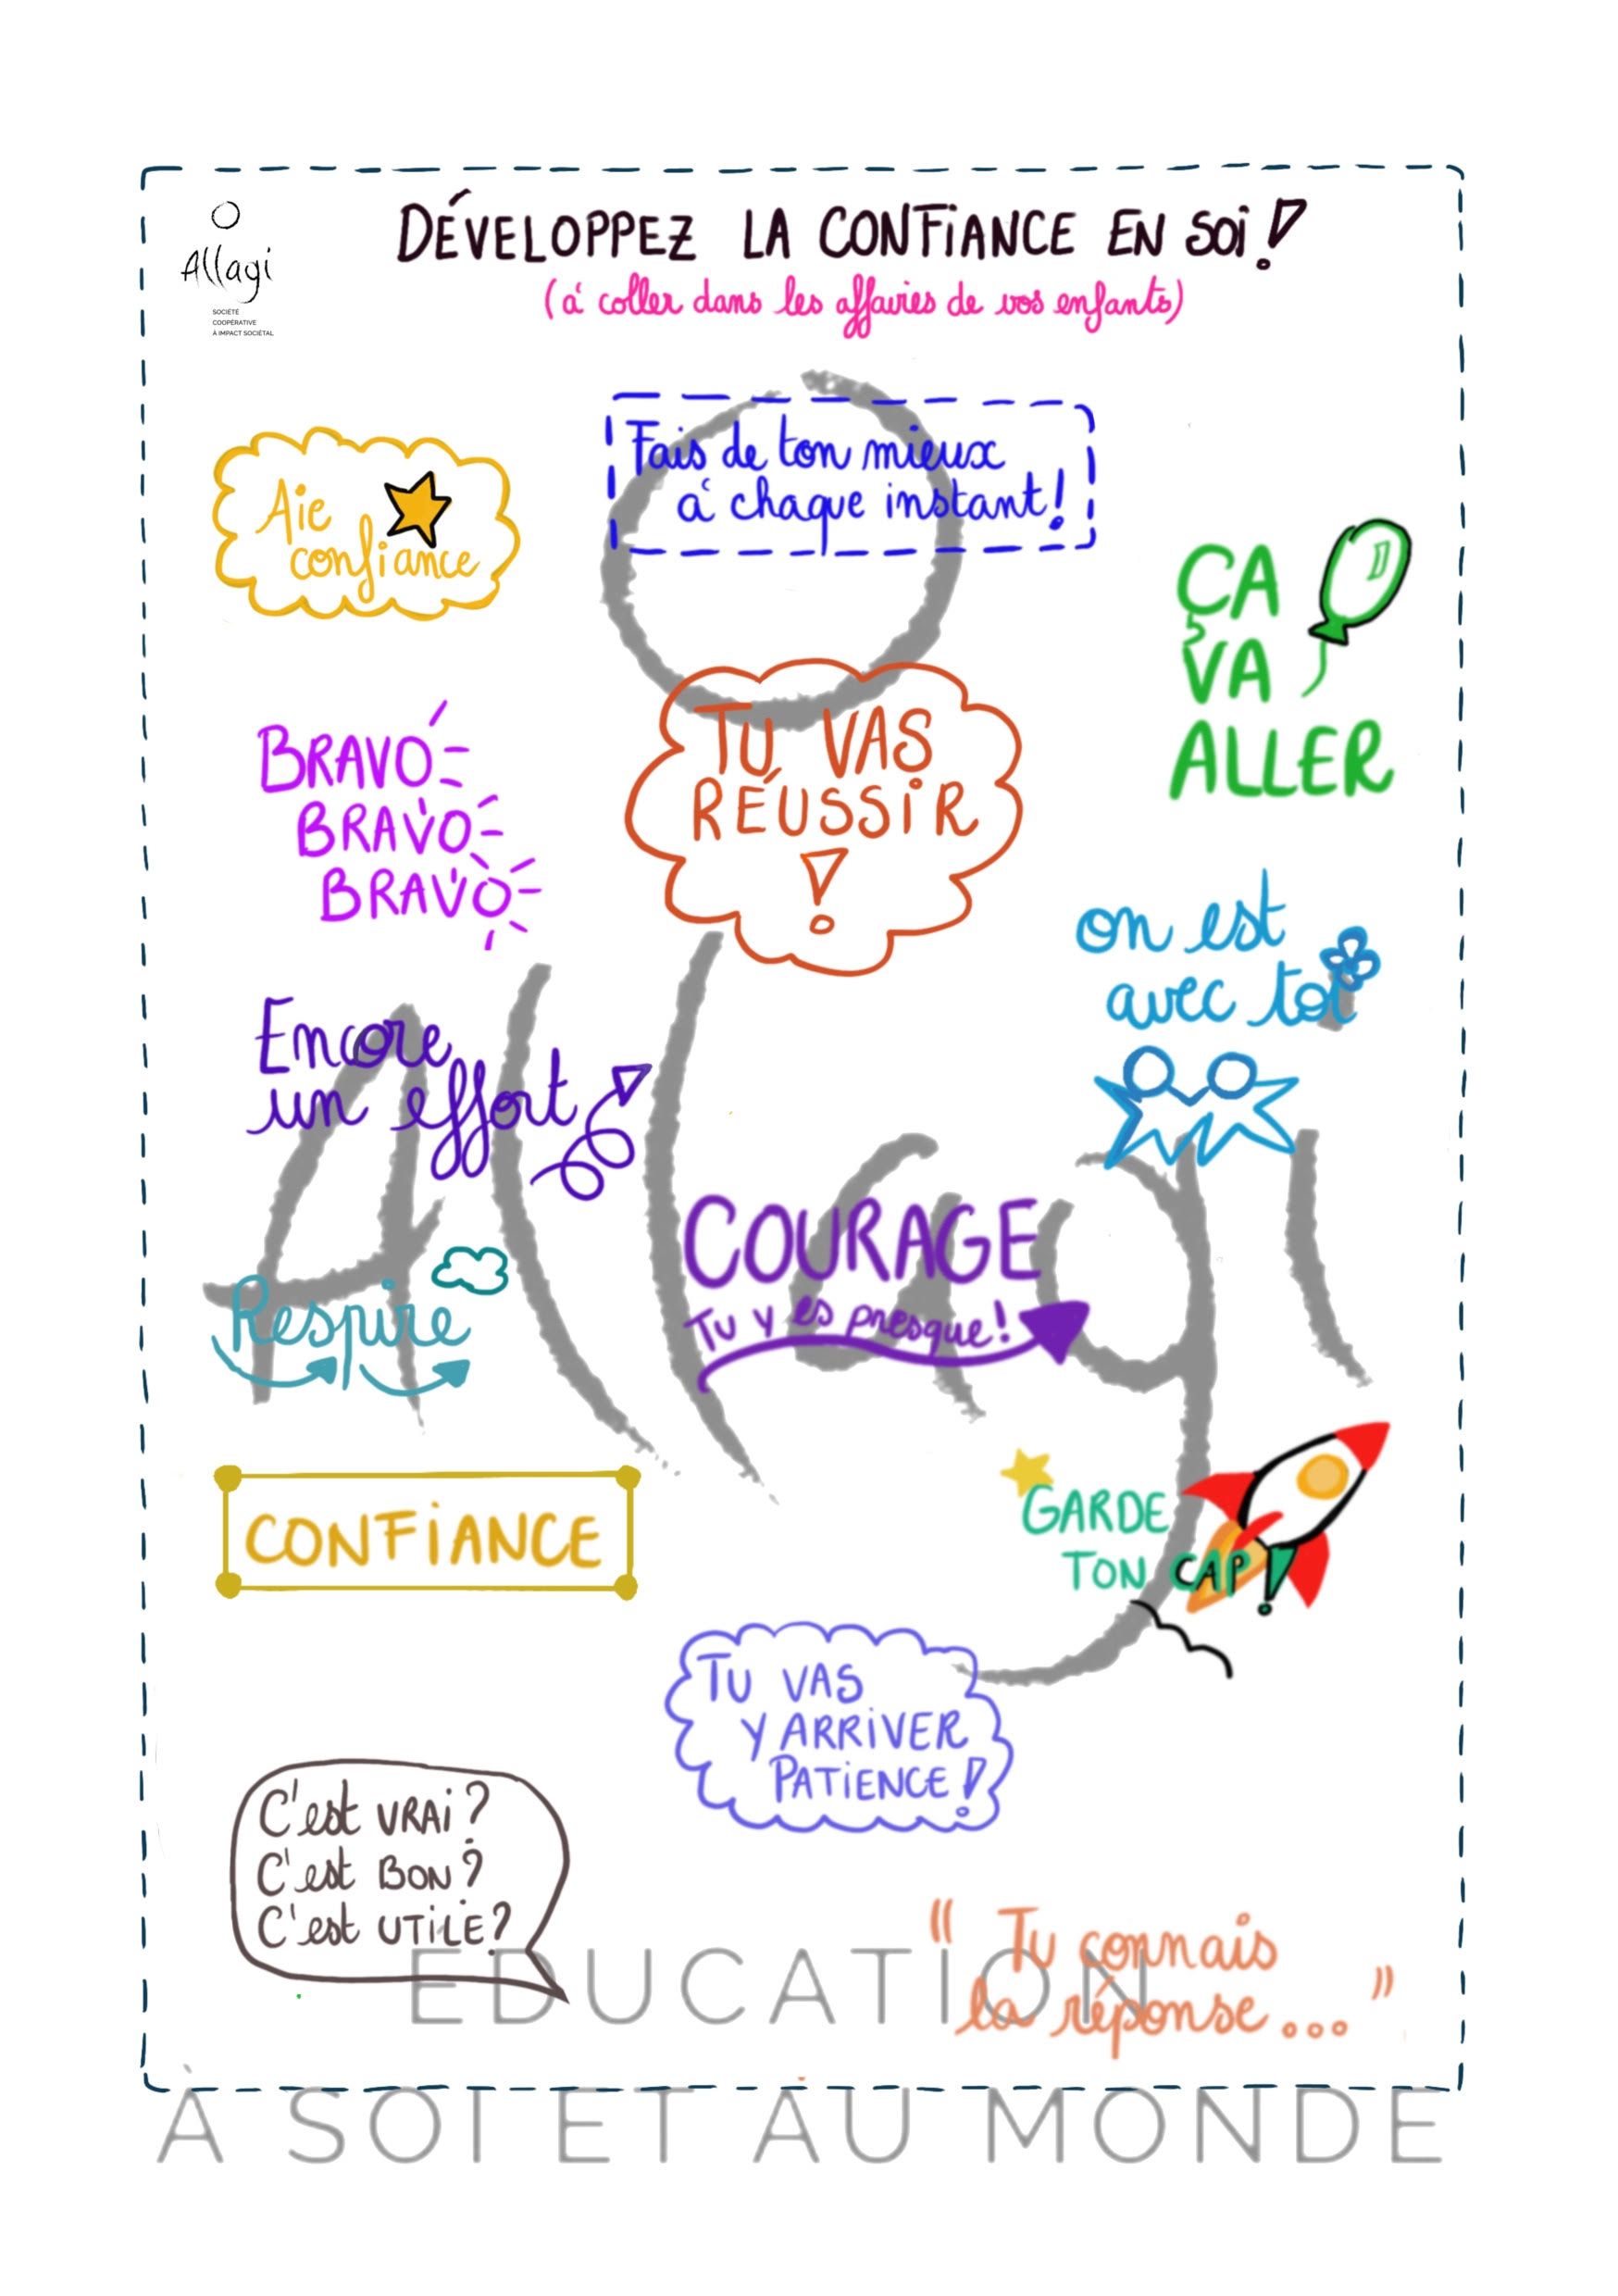 Allagi
SOCIÉTÉ
COOPÉRATIVE
À IMPACT SOCIÉTAL
DÉVELOPPEZ LA CONFIANCE EN SOI !
(à coller dans les affaires de vos enfants)
Aie
confiance
Fais de ton mieux
à chaque instant !
ÇA
VA
ALLER
BRAVO
BRAVO
BRAVO
TU VAS
RÉUSSIR
!
on est
avec toi
Encore
un effort
COURAGE
Tu y es presque !
Respire
Allagi
CONFIANCE
GARDE
TON CAP !
TU VAS
Y ARRIVER
PATIENCE !
C'est VRAI ?
C'est BON ?
C'est UTILE ?
" Tu connais
la réponse... "
EDUCATION
À SOI ET AU MONDE